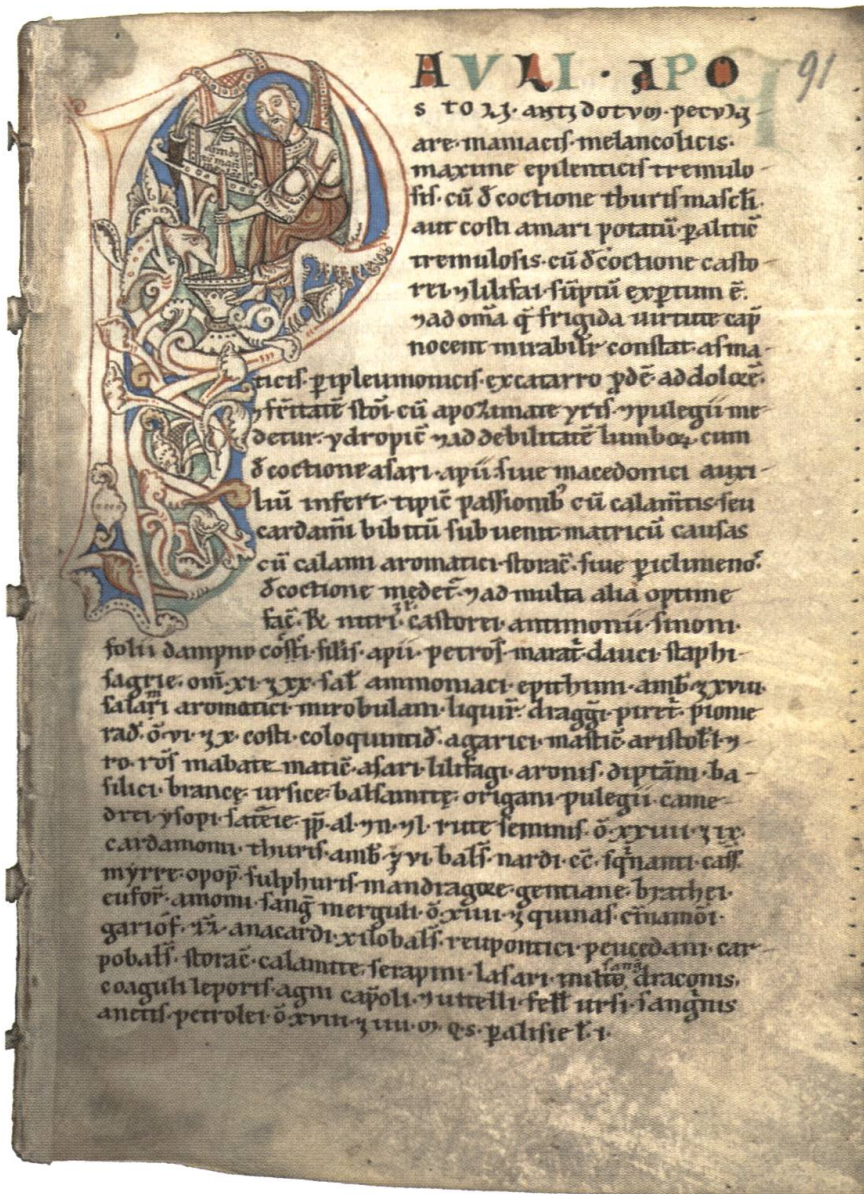 PAVLI · APO 91
STOLI · antidotum · peculi
are · maniacis · melancolicis ·
maxime epilenticis tremulo-
sis · cū d̄coctione thuris mascli ·
aut costi amari potatū · paliticc̄
tremulosis · cū d̄coctione casto-
rei ⁊ lilifai · sūptū exptum ē ·
⁊ ad om̄a q̄ frigida uirtute cap̄
nocent mirabilr̄ constat · asma-
ticis · pipleumonicis · ex catarro p̄dē · ad dolorē ·
⁊ fr̄itatē stōi · cū apozimate yris · ⁊ pulegii me-
detur · ydropic̄ ⁊ ad debilitatē lumboꝝ · cum
d̄coctione asari · apii · siue macedonici auxi-
liū infert · tipic̄ passionib; cū calam̄tis · seu
cardam̄i bibitū subuenit · matricū causas
cū calami aromatici · storac̄ · siue piclimeno ·
d̄coctione medet̄ · ⁊ ad multa alia optime
fac̄ · castorei · antimonii · sinoni ·
folii · costi · silis · apii · petros̄ · marat̄ · dauci · staphi-
sagrie · om̄ · xi · ʒ xx · sal̄ ammoniaci · epithimi · amb̄ · ʒ xviii ·
aromatici · mirobulani · liquir̄ · dragḡi · piret̄ · pionie
rad̄ · ō · vi · ʒ x · costi · coloquintid̄ · agarici · mastic̄ · aristol̄ · l · ⁊
ro · ros̄ mabate · matic̄ · asari · lilifagi · aronis · diptāni · ba-
silici · brancę · ursice · balsamitę · origani · pulegii · came-
drei · ysopi · sat̄eie · pp̄ · al · ⁊ n · ⁊ l · rute seminis · ō · xxiiii · ʒ ix ·
cardamomi · thuris · amb̄ · ʒ vi · bals̄ · nardi · cc̄ · sq̄nanti · cass̄ ·
myrre · opop̄ · sulphuris · mandragore · gentiane · brathei ·
eufor̄ · amomi · sang̃ merguli · ō · xiiii · ʒ quinas · cīnamōi ·
gariof̄ · anacardi · xilobals̄ · reupontici · peucedani · car-
pobals̄ · storac̄ · calamite · serapini · lasari · sang̃ draconis ·
coaguli leporis · agni cap̄oli · ⁊ uitelli · fell̄ ursi · sanguīs
anetis · petrolei · ō · xviii · ʒ iiii · m · qs · palisie